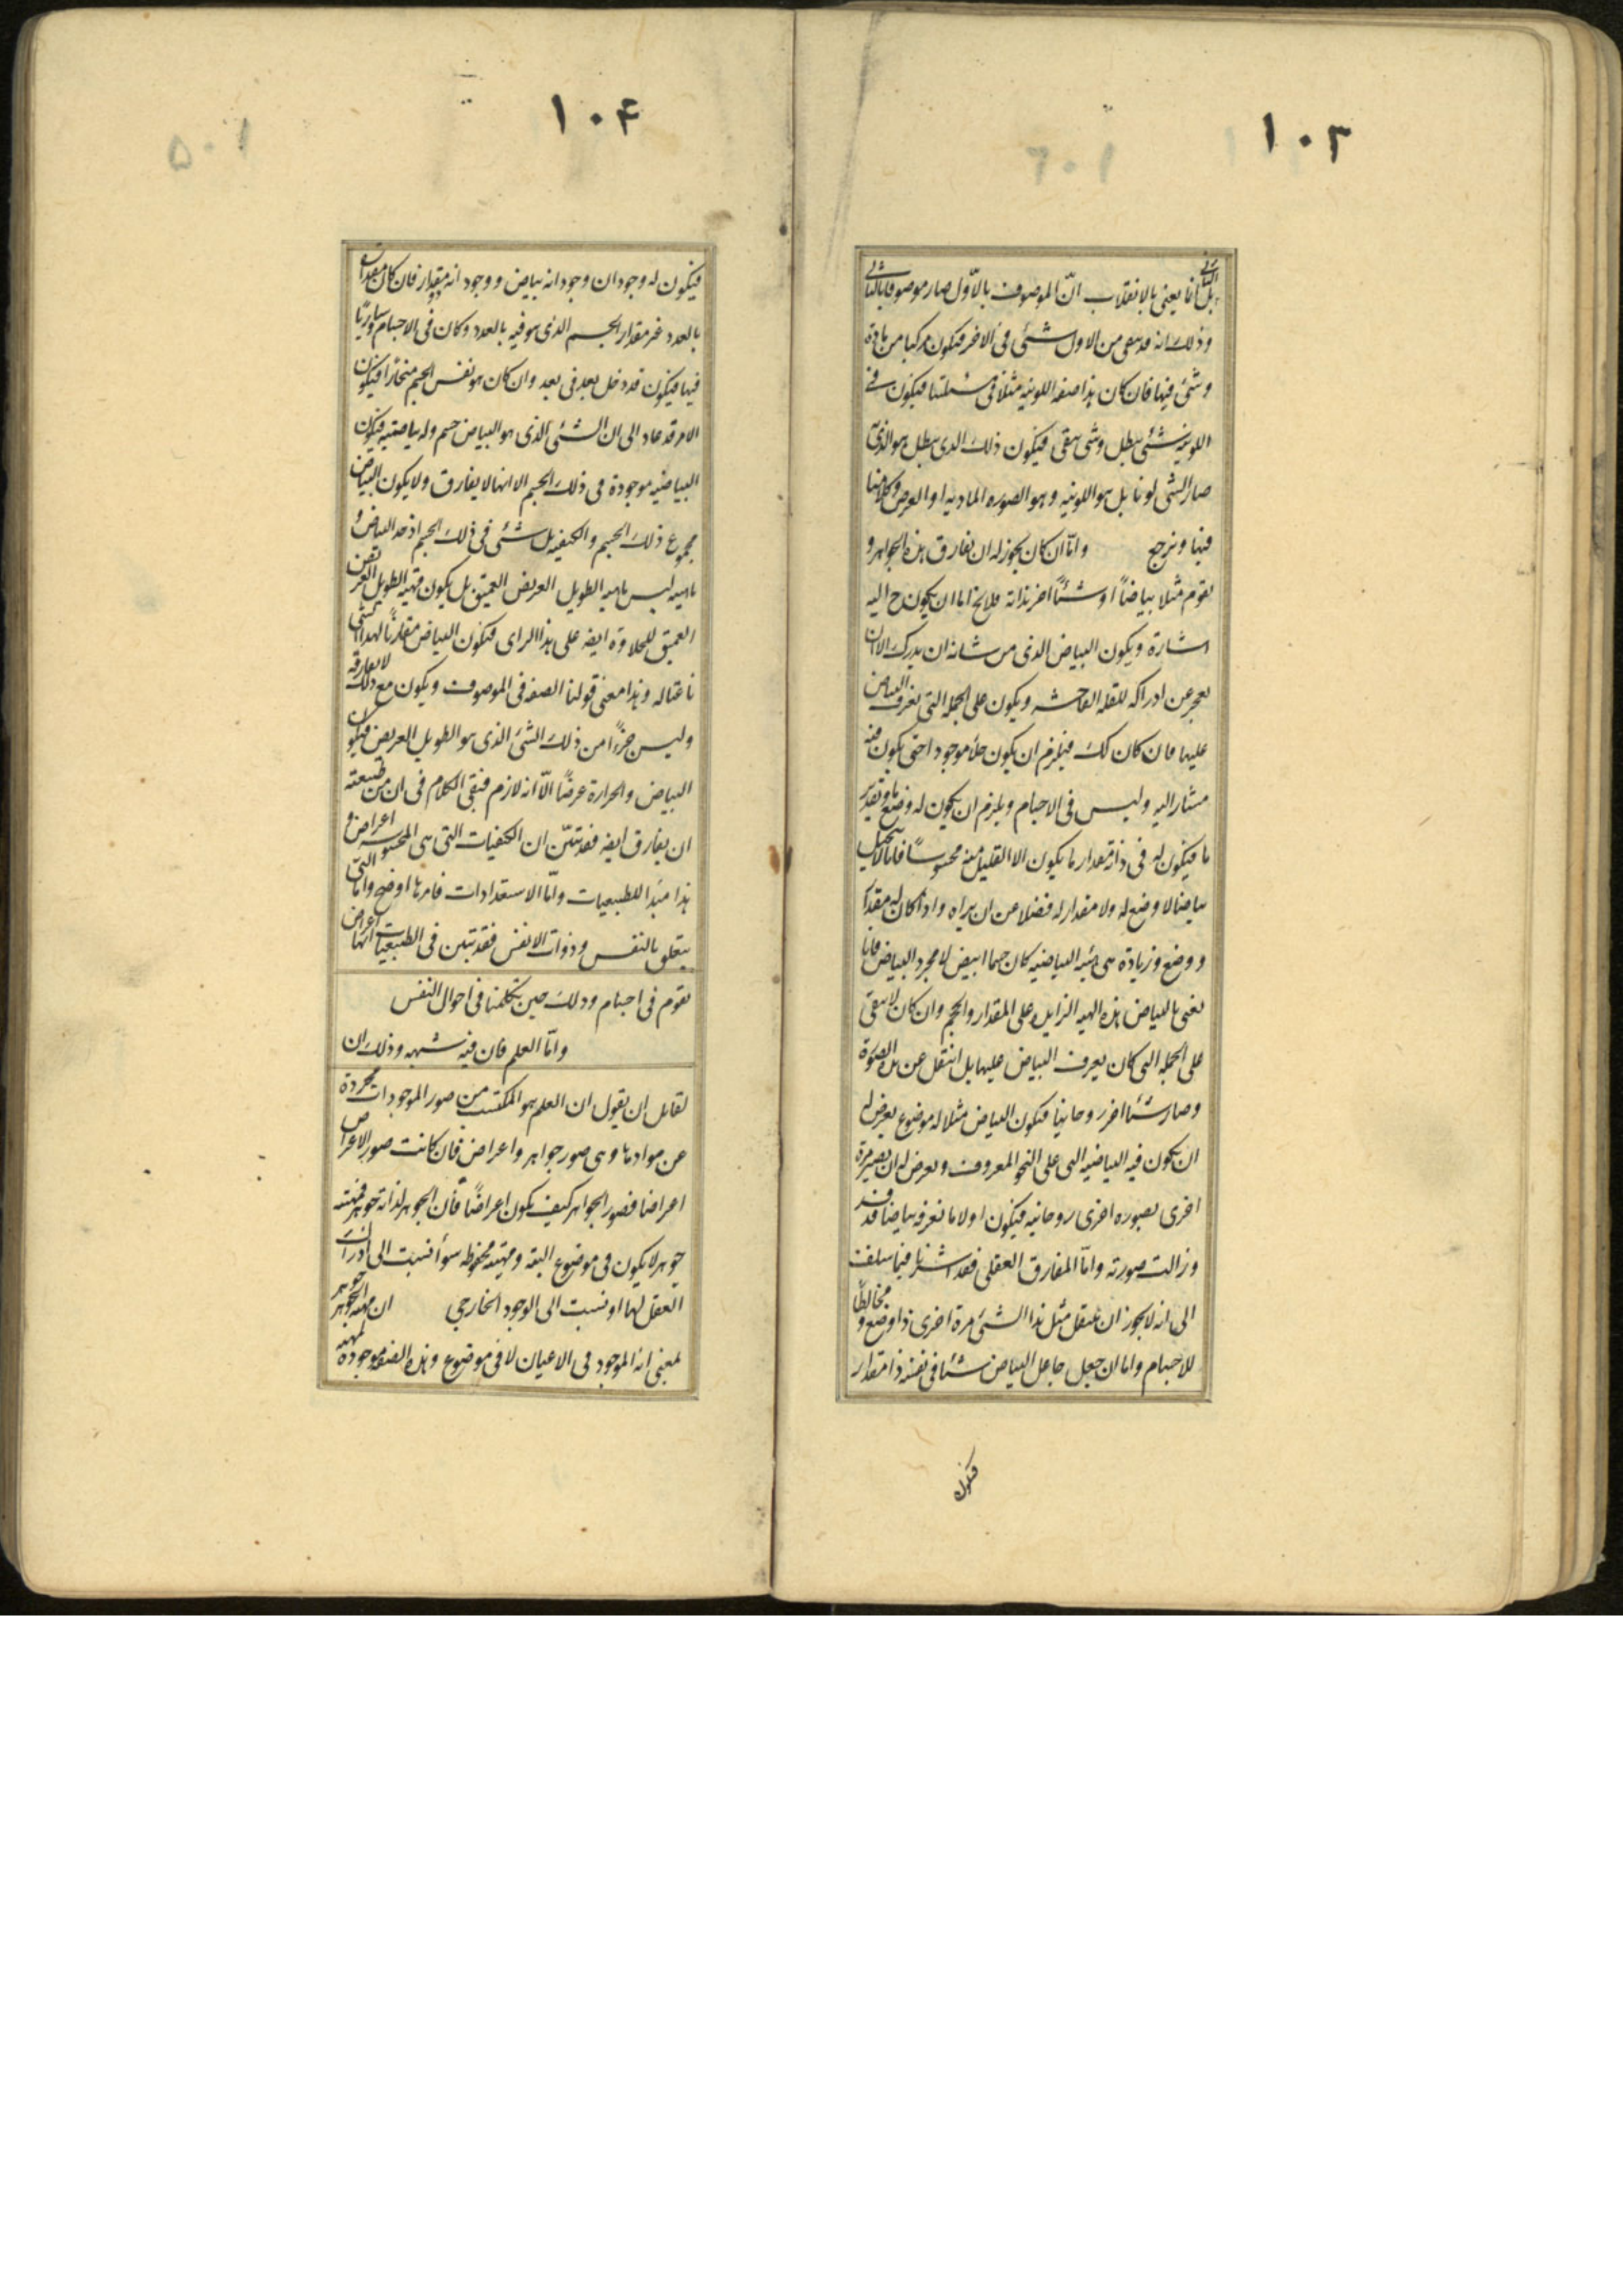 ١٠٣
بل انا یعنی بالانقلاب انّ الموصوف بالاوّل صار موصوفا بالثانی
وذلک انه قد یبقی من الاول شئ فی الاخر فیکون مرکبا من مادة
وشئ فیها فان کان هذا صفه اللونیه مثلا فی مسئلتنا فیکون فی
اللونیه شئ یبطل وشی یبقی فیکون ذلک الذی یبطل هو الذی به
صار الشی لونا بل هو اللونیه وهو الصوره المادیه او العرض وکلامنا
فیها ونرجح وامّا ان کان یجوز له ان یفارق هذه الجواهر و
یقوم مثلا بیاضاً او شئاً اخر بذاته فلا یخ اما ان یکون ح الیه
اشارة ویکون البیاض الذی من شانه ان یدرک الا ان
یعجز عن ادراکه للقله الفاحشه ویکون علی الجمله التی یعرف البیاض
علیها فان کان کک فیلزم ان یکون خلأ موجودا حتی یکون فیه
مشار الیه ولیس فی الاجسام ویلزم ان یکون له وضع ما وتقدیر
ما فیکون له فی ذاته مقدار ما یکون الا القلیل منه محسوساً فانا لا نتخیل
بیاضا لا وضع له ولا مقدار له فضلا عن ان یراه واذا کان له مقدار
ووضع وزیادة هی هئیه البیاضیه کان جسما ابیض لا مجرد البیاض فانا
نعنی بالبیاض هذه الهیه الزایده علی المقدار والحجم وان کان لا یبقی
علی الجمله التی کان یعرف البیاض علیها بل انتقل عن هذه الصورة
وصار شئا اخر روحانیا فیکون البیاض مثلا له موضوع یعرض له
ان یکون فیه البیاضیه التی علی النحو المعروف ویعرض له ان یصیر مرة
اخری بصوره اخری روحانیه فیکون اولا ما نعرفه بیاضا قد فسد
وزالت صورته وامّا المفارق العقلی فقد اشرنا فیما سلف
الی انه لا یجوز ان ینتقل مثل هذا الشئ مرة اخری ذا وضع و مخالطاً
للاجسام واما ان جعل جاعل البیاض شئا فی نفسه ذا مقدار
فیکون
١٠۴
فیکون له وجودان وجود انه بیاض ووجود انه مقدار فان کان مقداره
بالعدد غیر مقدار الجسم الذی هو فیه بالعدد وکان فی الاجسام وساریاً
فیها فیکون قد دخل بعد فی بعد وان کان هو نفس الجسم منحازاً فیکون
الامر قد عاد الی ان الشئ الذی هو البیاض جسم وله بیاضیه فیکون
البیاضیه موجودة فی ذلک الجسم الا انها لا یفارق ولا یکون البیاض
مجموع ذلک الجسم والکیفیه بل شئ فی ذلک الجسم اذ حد البیاض و
ماهیه لیس ماهیه الطویل العریض العمیق بل یکون مهیه الطویل العریض
العمیق للحلاوة ایضه علی هذا الرای فیکون البیاض مقارناً لهذا الشئ
ناعتا له وهذا معنی قولنا الصفه فی الموصوف ویکون مع ذلک لا یفارقه
ولیس جزءاً من ذلک الشئ الذی هو الطویل العریض فیکون
البیاض والحرارة عرضاً الّا انه لازم فبقی الکلام فی ان من طبیعته
ان یفارق ایضه فقد تبیّن ان الکیفیات التی هی المحسوسه اعراض و
هذا مبدأ للطبیعیات وامّا الاستعدادات فامرها اوضح واما التی
یتعلق بالنفس وذوات الانفس فقد تبین فی الطبیعیات انها اعراض
یقوم فی اجسام وذلک حین تکلمنا فی احوال النفس
وامّا العلم فان فیه شبهه وذلک ان
لقایل ان یقول ان العلم هو المکتسب من صور الموجودات مجردة
عن موادها وهی صور جواهر واعراض فان کانت صور الاعراض
اعراضا فصور الجواهر کیف یکون اعراضاً فان الجوهر لذاته جوهر فمهیته
جوهر لا یکون فی موضوع البته ومهیته محفوظه سواء نسبت الی ادراک
العقل لها او نسبت الی الوجود الخارجی ان مهیه الجوهر جوهر
بمعنی انه الموجود فی الاعیان لا فی موضوع وهذه الصفه موجودة لمهیه